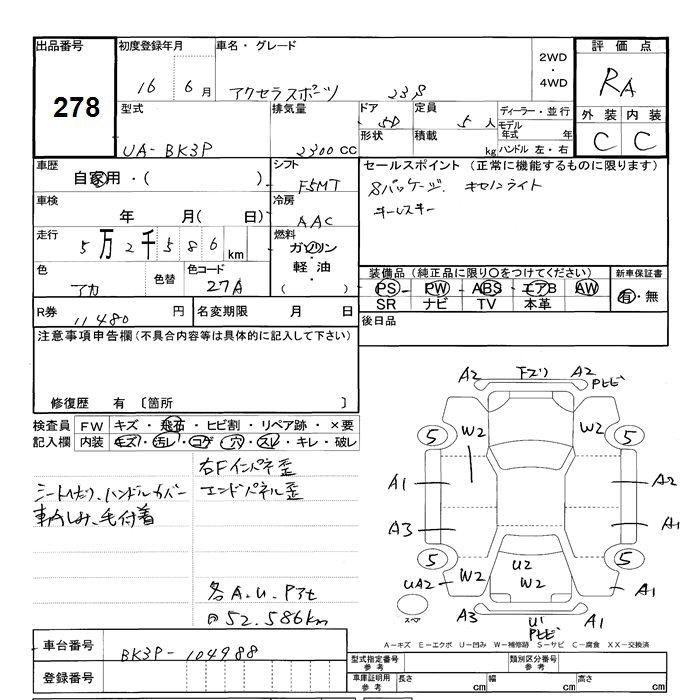 出品番号 278
初度登録年月 16 6月
車名・グレード アクセラスポーツ 23S
2WD・4WD
評価点 RA
外装 C 内装 C
型式 UA-BK3P
排気量 2300 CC
ドア 5D
形状
定員 5人
積載 kg
ディーラー・並行
モデル年式 年
ハンドル 左・右
車歴 自家用・( )
シフト F5MT
セールスポイント(正常に機能するものに限ります)
Sパッケージ. キセノンライト
キーレスキー
車検 年 月( 日)
冷房 AAC
走行 5万2千586km
燃料 ガソリン
軽油
( )
色 アカ
色替
色コード 27A
装備品(純正品に限り○をつけてください)
PS PW ABS エアB AW
SR ナビ TV 本革
新車保証書
有・無
R券 11480円
名変期限 月 日
後日品
注意事項申告欄(不具合内容等は具体的に記入して下さい)
修復歴 有 〔箇所 〕
検査員記入欄
FW キズ・飛石・ヒビ割・リペア跡・×要
内装 キズ・汚レ・コゲ・穴・スレ・キレ・破レ
右Fインパネ歪
エンドパネル歪
シートヘたり、ハンドルカバー
車内しみ、毛付着
各A.U.Pアセ
52.586km
A2 下ズリ A2
Pヒビ
5 W2 W2 5
A1 A2
A3 A1
5 U2 5
UA2 W2 W2 A1
A3 U1 A1
Pヒビ
スペア
A−キズ E−エクボ U−凹み W−補修跡 S−サビ C−腐食 XX−交換済
車台番号 BK3P-104988
登録番号
型式指定番号 参考
類別区分番号 参考
車庫証明用 参考
長さ cm 幅 cm 高さ cm